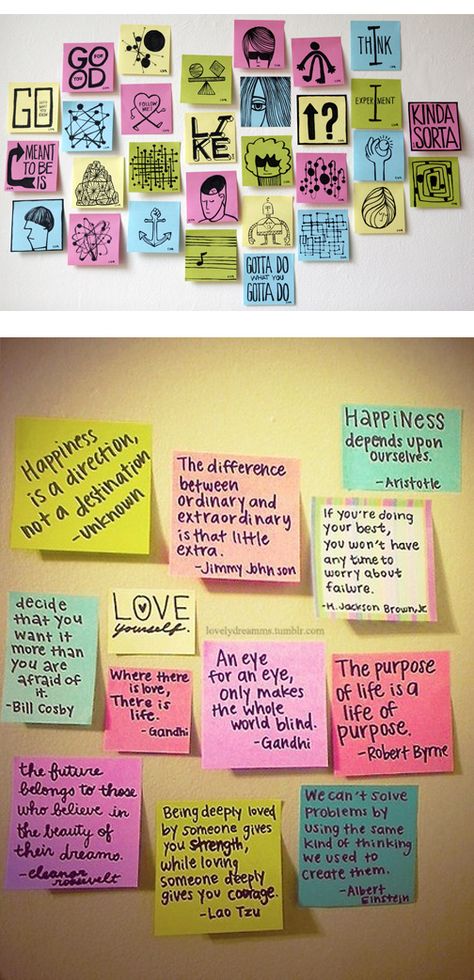 GO
FOR
YOU
OD
THINK
GO
FOLLOW
ME!
EXPERIMENT
KINDA
SORTA
LIKE!
↑?
MEANT
TO BE
IS
GOTTA DO
WHAT YOU
GOTTA DO
Happiness
is a direction,
not a destination
-unknown
The difference
between
ordinary and
extraordinary
is that little
extra.
-Jimmy Johnson
HAPPINESS
depends upon
ourselves.
-Aristotle
If you're doing
your best,
you won't have
any time to
worry about
failure.
-H. Jackson Brown, Jr.
decide
that you
want it
more than
you are
afraid of
it.
-Bill Cosby
LOVE
yourself.
lovelydreamms.tumblr.com
Where there
is love,
There is
life.
-Gandhi
An eye
for an eye,
only makes
the whole
world blind.
-Gandhi
The purpose
of life is a
life of
purpose.
-Robert Byrne
the future
belongs to those
who believe in
the beauty of
their dreams.
-eleanor roosevelt
Being deeply loved
by someone gives
you strength,
while loving
someone deeply
gives you courage.
-Lao Tzu
We can't solve
problems by
using the same
kind of thinking
we used to
create them.
-Albert
Einstein